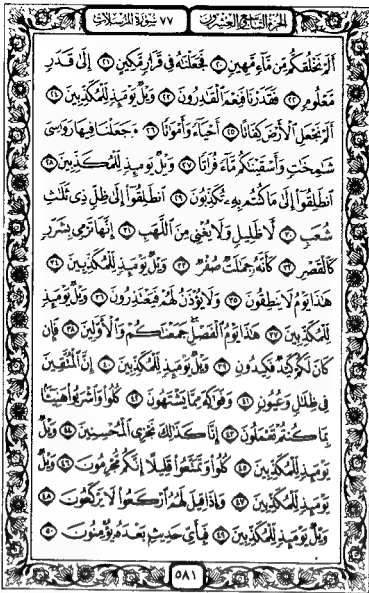 الجزء التاسع والعشرون ٧٧ سورة المرسلات
أَلَمْ نَخْلُقكُّم مِّن مَّآءٍ مَّهِينٍ ٢٠ فَجَعَلْنَٰهُ فِى قَرَارٍ مَّكِينٍ ٢١ إِلَىٰ قَدَرٍ
مَّعْلُومٍ ٢٢ فَقَدَرْنَا فَنِعْمَ ٱلْقَٰدِرُونَ ٢٣ وَيْلٌ يَوْمَئِذٍ لِّلْمُكَذِّبِينَ ٢٤
أَلَمْ نَجْعَلِ ٱلْأَرْضَ كِفَاتًا ٢٥ أَحْيَآءً وَأَمْوَٰتًا ٢٦ وَجَعَلْنَا فِيهَا رَوَٰسِىَ
شَٰمِخَٰتٍ وَأَسْقَيْنَٰكُم مَّآءً فُرَاتًا ٢٧ وَيْلٌ يَوْمَئِذٍ لِّلْمُكَذِّبِينَ ٢٨
ٱنطَلِقُوٓا۟ إِلَىٰ مَا كُنتُم بِهِۦ تُكَذِّبُونَ ٢٩ ٱنطَلِقُوٓا۟ إِلَىٰ ظِلٍّ ذِى ثَلَٰثِ
شُعَبٍ ٣٠ لَّا ظَلِيلٍ وَلَا يُغْنِى مِنَ ٱللَّهَبِ ٣١ إِنَّهَا تَرْمِى بِشَرَرٍ
كَٱلْقَصْرِ ٣٢ كَأَنَّهُۥ جِمَٰلَتٌ صُفْرٌ ٣٣ وَيْلٌ يَوْمَئِذٍ لِّلْمُكَذِّبِينَ ٣٤
هَٰذَا يَوْمُ لَا يَنطِقُونَ ٣٥ وَلَا يُؤْذَنُ لَهُمْ فَيَعْتَذِرُونَ ٣٦ وَيْلٌ يَوْمَئِذٍ
لِّلْمُكَذِّبِينَ ٣٧ هَٰذَا يَوْمُ ٱلْفَصْلِ ۖ جَمَعْنَٰكُمْ وَٱلْأَوَّلِينَ ٣٨ فَإِن
كَانَ لَكُمْ كَيْدٌ فَكِيدُونِ ٣٩ وَيْلٌ يَوْمَئِذٍ لِّلْمُكَذِّبِينَ ٤٠ إِنَّ ٱلْمُتَّقِينَ
فِى ظِلَٰلٍ وَعُيُونٍ ٤١ وَفَوَٰكِهَ مِمَّا يَشْتَهُونَ ٤٢ كُلُوا۟ وَٱشْرَبُوا۟ هَنِيٓـًٔۢا
بِمَا كُنتُمْ تَعْمَلُونَ ٤٣ إِنَّا كَذَٰلِكَ نَجْزِى ٱلْمُحْسِنِينَ ٤٤ وَيْلٌ
يَوْمَئِذٍ لِّلْمُكَذِّبِينَ ٤٥ كُلُوا۟ وَتَمَتَّعُوا۟ قَلِيلًا إِنَّكُم مُّجْرِمُونَ ٤٦ وَيْلٌ
يَوْمَئِذٍ لِّلْمُكَذِّبِينَ ٤٧ وَإِذَا قِيلَ لَهُمُ ٱرْكَعُوا۟ لَا يَرْكَعُونَ ٤٨
وَيْلٌ يَوْمَئِذٍ لِّلْمُكَذِّبِينَ ٤٩ فَبِأَىِّ حَدِيثٍۭ بَعْدَهُۥ يُؤْمِنُونَ ٥٠
٥٨١